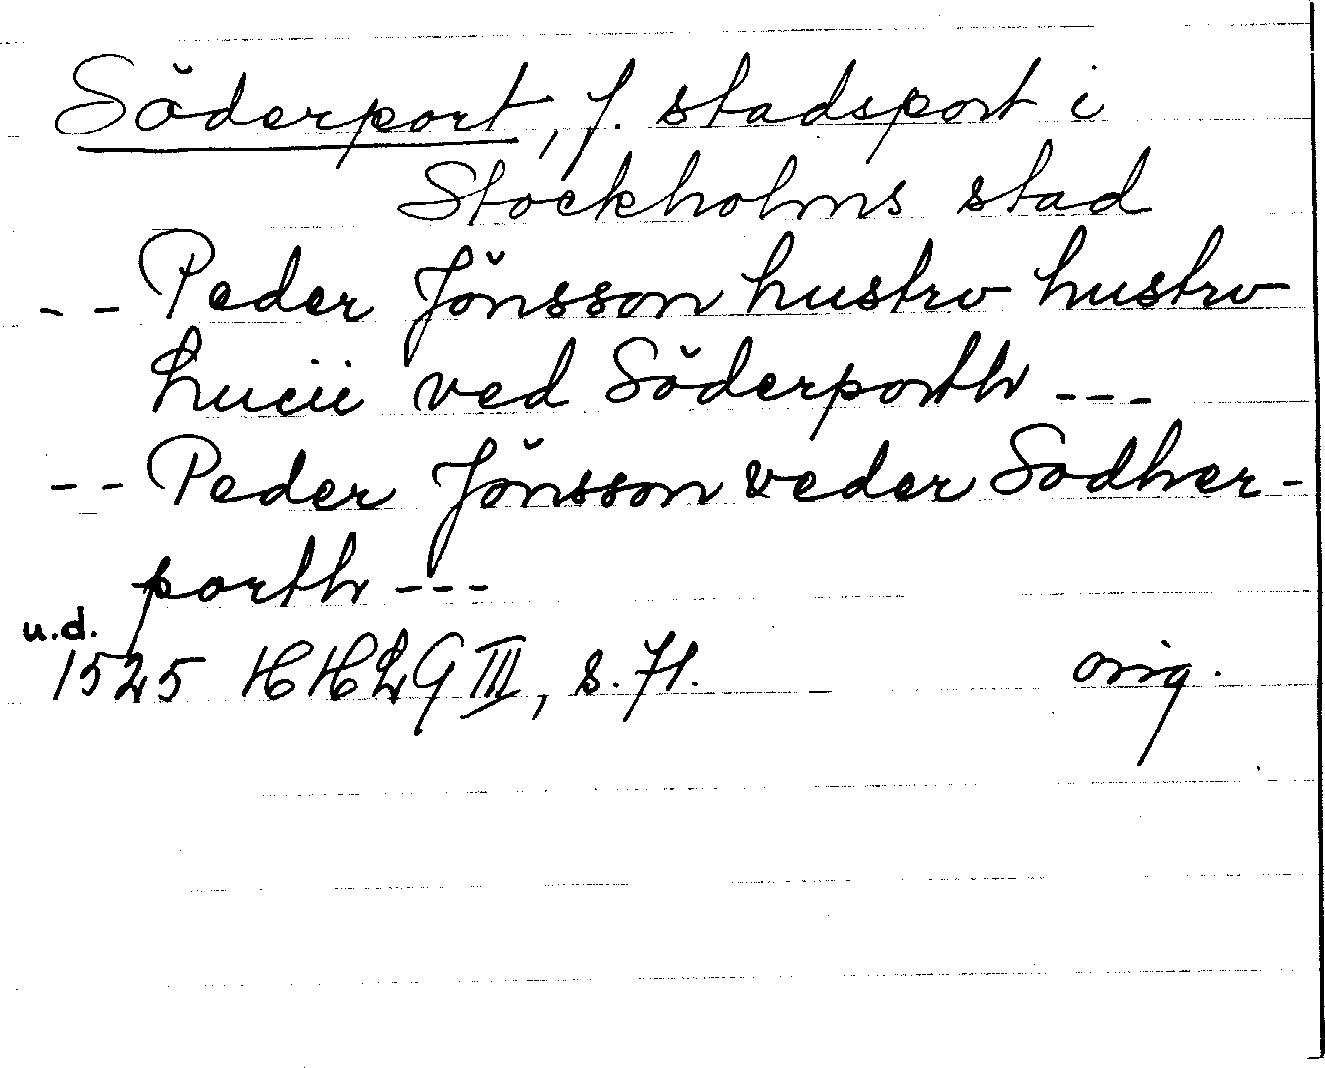 Söderport, f. stadsport i
Stockholms stad
-- Peder Jönsson hustrv hustrv
Lucie ved Söderporth ---
-- Peder Jönsson veder Sodher-
porth ---
u.d.
1525 HHLG III, s. 71. orig.